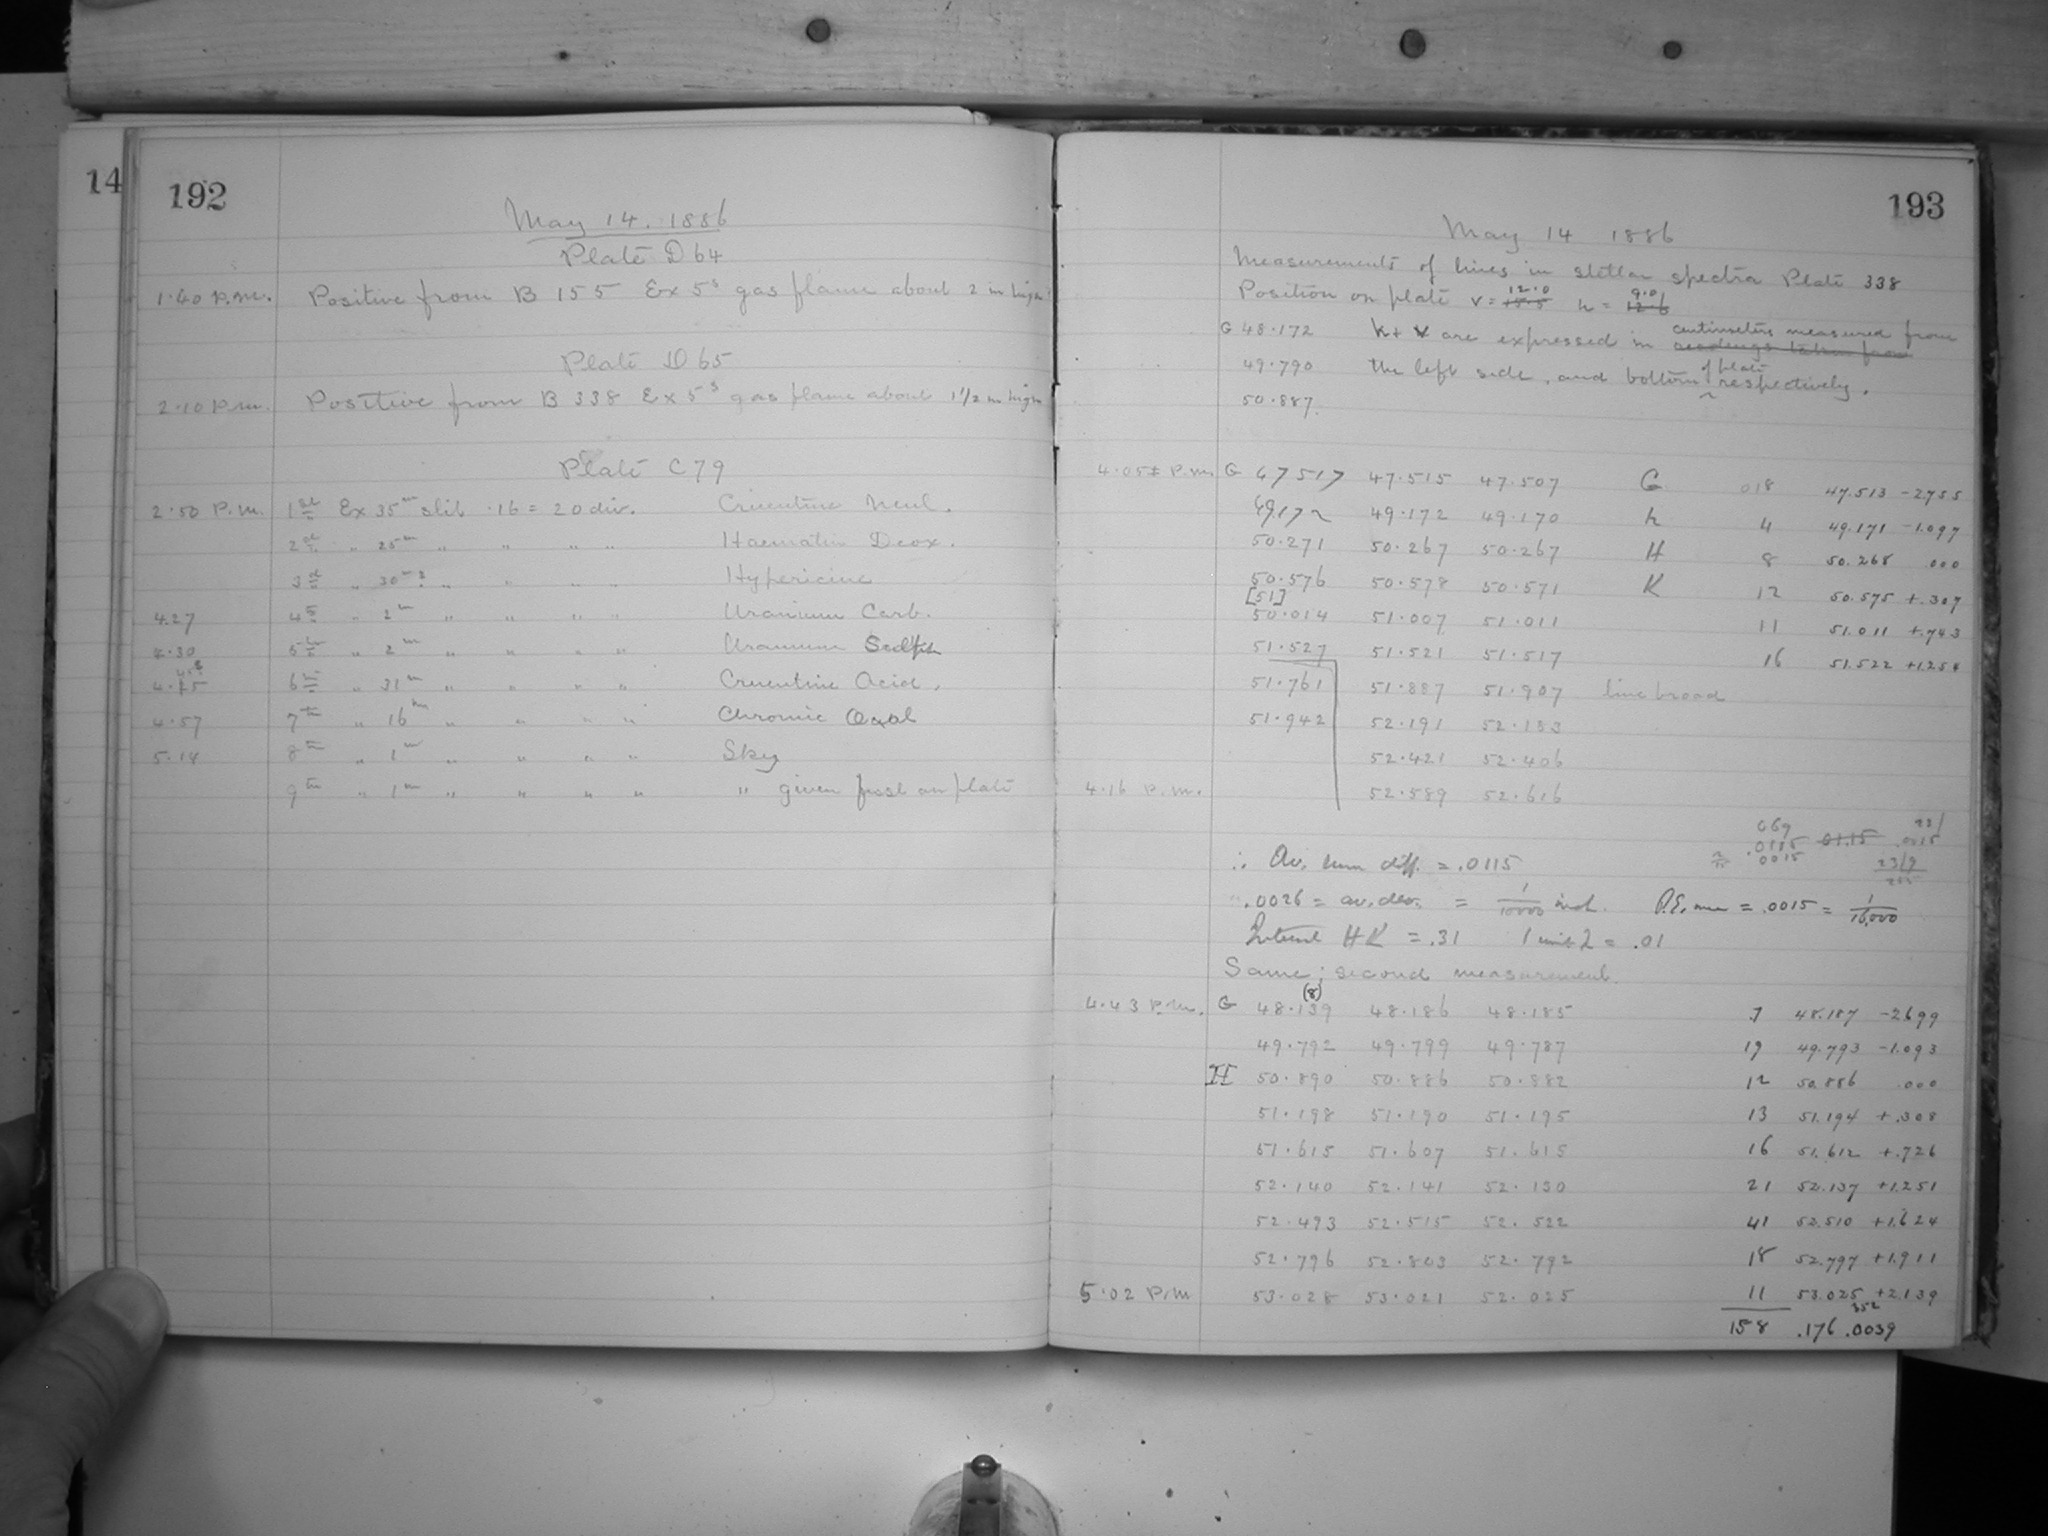 14
192
May 14. 1886
Plate D 64
1.40 P.M. Positive from B 155 Ex 5s gas flame about 2 in high
Plate D 65
2.10 P.M. Positive from B 338 Ex 5s gas flame about 1 1/2 in high
Plate C 79
2.50 P.M. 1st Ex 35m slit .16 = 20 div. Cruentine Neut.
2d " 25m " " " " Haematin Deox.
3d " 30m? " " " " Hypericine
4.27 4th " 2m " " " " Uranium Carb.
4.30 5th " 2m " " " " Uranium Sulph
4.45 6th " 31m " " " " Cruentine Acid.
4.57 7th " 16m " " " " Chromic Oxal
5.14 8th " 1m " " " " Sky
9th " 1m " " " " " given first on plate
193
May 14 1886
Measurements of lines in stellar spectra Plate 338
Position on plate v = 15.5 12.0 h = 12.6 9.0
G 48.172 h + v are expressed in readings taken from centimeters measured from
49.790 the left side, and bottom of plate respectively.
50.887.
4.05± P.M. G 47517 47.515 47.507 G 018 47.513 -2755
49.172 49.172 49.170 h 4 49.171 -1.097
50.271 50.267 50.267 H 8 50.268 .000
50.576 50.578 50.571 K 12 50.575 +.307
[51]
50.014 51.007 51.011 11 51.011 +.743
51.527 51.521 51.517 16 51.522 +1.254
51.761 51.887 51.907 line broad
51.942 52.191 52.183
52.421 52.406
4.16 P.M. 52.589 52.616
069
.0115 01.15 .0015
0015 23/9
∴ Av. sum diff. = .0115
.0026 = av. dev. = 1/10000 inch. P.E. = .0015 = 1/16,000
Interval HK = .31 1 unit λ = .01
Same; second measurement.
(8)
4.43 P.M. G 48.139 48.186 48.185 7 48.187 -2699
49.792 49.799 49.787 19 49.793 -1.093
H 50.890 50.886 50.882 12 50.886 .000
51.198 51.190 51.195 13 51.194 +.308
51.615 51.607 51.615 16 51.612 +.726
52.140 52.141 52.130 21 52.137 +1.251
52.493 52.515 52.522 41 52.510 +1.624
52.796 52.803 52.792 18 52.797 +1.911
5.02 P.M 53.028 53.021 52.025 11 53.025 +2.139
352
158 .176 .0039